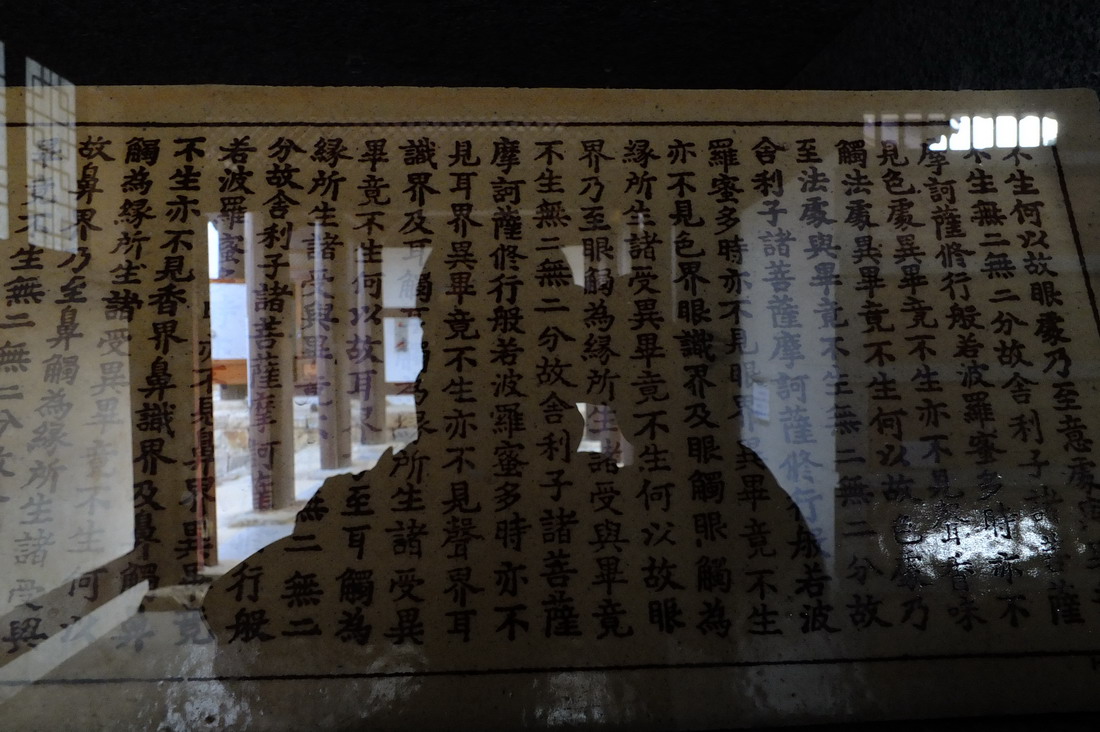 不生何以故眼處乃至意處
不生無二無二分故舍利子諸菩薩
摩訶薩修行般若波羅蜜多時亦不
見色處異畢竟不生亦不見聲香味
觸法處異畢竟不生何以故色處乃
至法處與畢竟不生無二無二分故
舍利子諸菩薩摩訶薩修行般若波
羅蜜多時亦不見眼界異畢竟不生
亦不見色界眼識界及眼觸眼觸為
緣所生諸受異畢竟不生何以故眼
界乃至眼觸為緣所生諸受與畢竟
不生無二無二分故舍利子諸菩薩
摩訶薩修行般若波羅蜜多時亦不
見耳界異畢竟不生亦不見聲界耳
識界及耳觸耳觸為緣所生諸受異
畢竟不生何以故耳界乃至耳觸為
緣所生諸受與畢竟不生無二無二
分故舍利子諸菩薩摩訶薩行般
若波羅蜜亦不見鼻界異畢
不生亦不見香界鼻識界及鼻觸
觸為緣所生諸受異畢竟不生何以
故鼻界乃至鼻觸為緣所生諸受與
不生無二無二分故